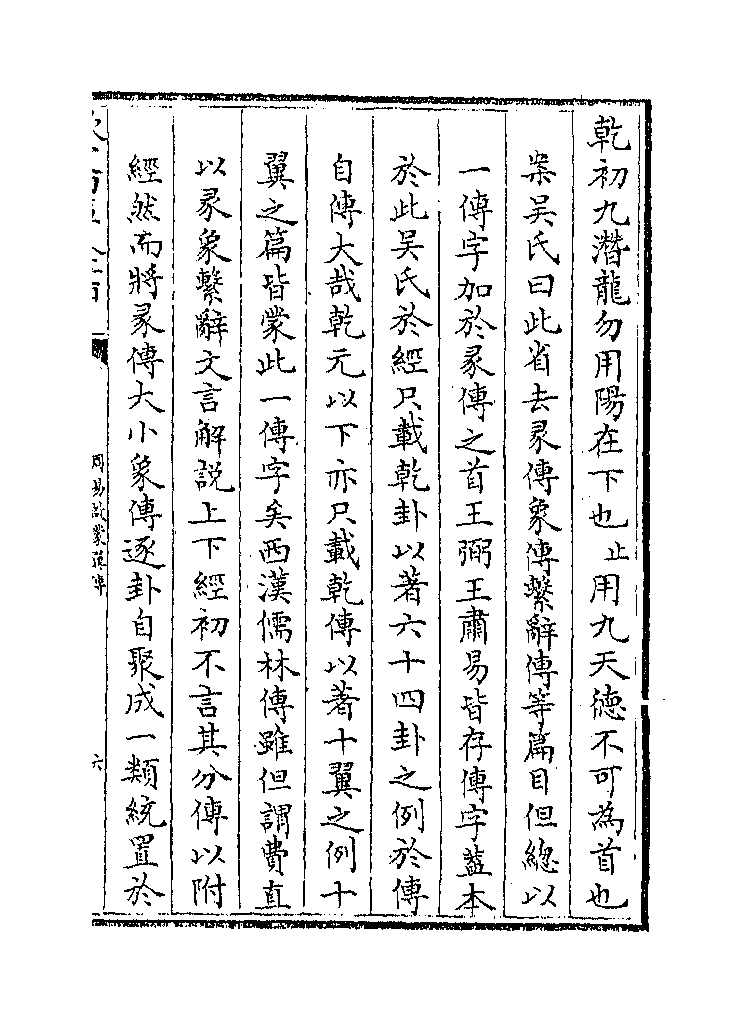 乾初九潛龍勿用陽在下也止用九天德不可為首也
案吴氏曰此省去彖傳象傳繫辭傳等篇目但總以
一傳字加於彖傳之首王弼王肅易皆存傳字葢本
於此吴氏於經只載乾卦以著六十四卦之例於傳
自傳大哉乾元以下亦只載乾傳以著十翼之例十
翼之篇皆蒙此一傳字矣西漢儒林傳雖但謂費直
以彖象繫辭文言解説上下經初不言其分傳以附
經然而將彖傳大小象傳逐卦自聚成一類統置於
周易啟蒙翼傳
六